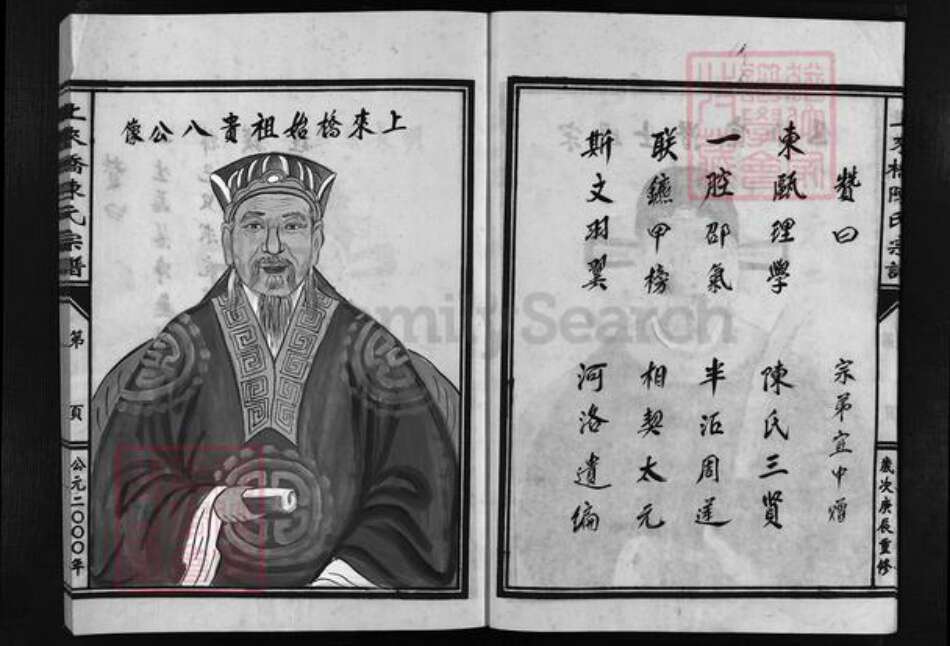 贊曰
宗弟宜中
東甌理學 陳氏三賢
一腔邵氣 半沼周蓮
联鑣甲榜 相契太元
斯文羽翼 河洛遺編
歲次庚辰重修
上來橋始祖貴八公像
上來橋陳氏宗譜
第 頁
公元二〇〇〇年
FamilySearch